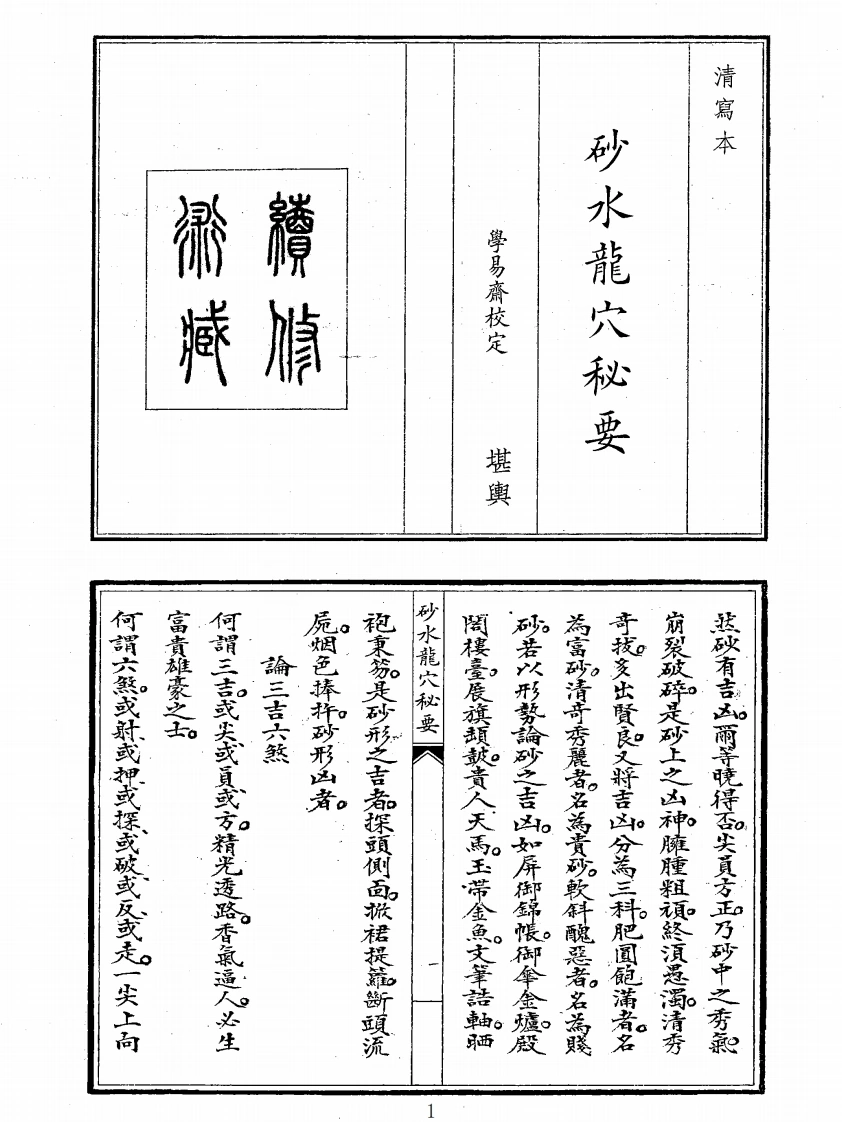 清寫本
砂水龍穴秘要
學易齋校定
堪輿
續修
術藏
然砂有吉凶。爾等曉得否。尖員方正。乃砂中之秀氣。
崩裂破碎。是砂上之凶神。臃腫粗頑。終須愚濁。清秀
奇拔。多出賢良。又將吉凶。分為三科。肥圓飽滿者。名
為富砂。清奇秀麗者。名為貴砂。軟斜醜惡者。名為賤
砂。若以形勢論砂之吉凶。如屏御錦帳。御傘金爐。殿
閣樓臺。展旗頓鼓。貴人天馬。玉帶金魚。文筆誥軸。晒
砂水龍穴秘要
袍秉笏。是砂形之吉者。探頭側面。掀裙提籮。斷頭流
屍。烟色捧杵。砂形凶者。
論三吉六煞
何謂三吉。或尖或員或方。精光透路。香氣逼人。必生
富貴雄豪之士。
何謂六煞。或射、或押、或探、或破、或反、或走。一尖上向
1